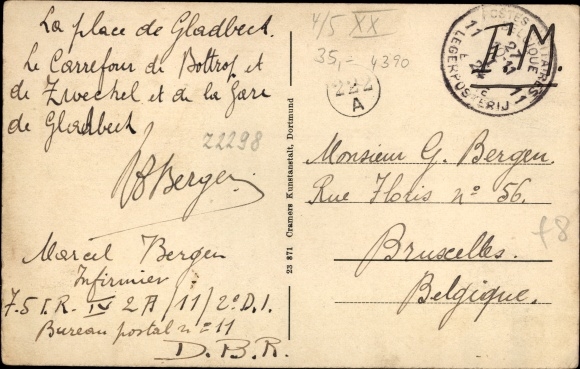 La place de Gladbeck.
Le Carrefour de Bottrop et
de Zweckel et de la Gare
de Gladbeck
22298
Bergen
Marcel Bergen
Infirmier
IV 2A/11/2e D.I.
Bureau postal n° 11
D.B.R.
23 871 Cramers Kunstanstalt, Dortmund
4/5 XX
35,- 4390
222
A
POSTES MILITAIRES
BELGIQUE
11 11
LEGERPOSTERIJ
F.M.
Monsieur G. Bergen.
Rue Floris n° 56.
Bruxelles.
Belgique.
+8